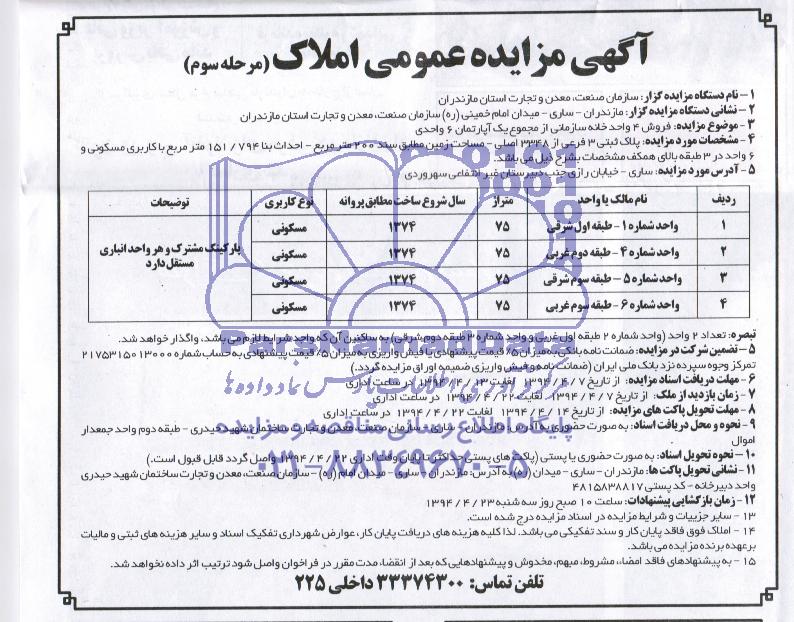 آگهی مزایده عمومی املاک (مرحله سوم)
۱ – نام دستگاه مزایده گزار: سازمان صنعت، معدن و تجارت استان مازندران
۲ – نشانی دستگاه مزایده گزار: مازندران - ساری - میدان امام خمینی (ره) سازمان صنعت، معدن و تجارت استان مازندران
۳ – موضوع مزایده: فروش ۴ واحد خانه سازمانی از مجموع یک آپارتمان ۶ واحدی
۴ – مشخصات مورد مزایده: پلاک ثبتی ۳ فرعی از ۳۳۴۸ اصلی - مساحت زمین مطابق سند ۲۰۰ متر مربع - احداث بنا ۷۹۴ / ۱۵۱ متر مربع با کاربری مسکونی و
۶ واحد در ۳ طبقه بالای همکف مشخصات بشرح ذیل می باشد.
۵ – آدرس مورد مزایده: ساری - خیابان رازی جنب دبیرستان غیر انتفاعی سهروردی
ردیف نام مالک یا واحد متراژ سال شروع ساخت مطابق پروانه نوع کاربری توضیحات
۱ واحد شماره ۱ - طبقه اول شرقی ۷۵ ۱۳۷۴ مسکونی
۲ واحد شماره ۴ - طبقه دوم غربی ۷۵ ۱۳۷۴ مسکونی
پارکینگ مشترک و هر واحد انباری
مستقل دارد
۳ واحد شماره ۵ - طبقه سوم شرقی ۷۵ ۱۳۷۴ مسکونی
۴ واحد شماره ۶ - طبقه سوم غربی ۷۵ ۱۳۷۴ مسکونی
تبصره: تعداد ۲ واحد (واحد شماره ۲ طبقه اول غربی و واحد شماره ۳ طبقه دوم شرقی) به ساکنین آن که واجد شرایط لازم می باشد، واگذار خواهد شد.
۵ – تضمین شرکت در مزایده: ضمانت نامه بانکی به میزان ۵٪ قیمت پیشنهادی یا فیش واریزی به میزان ۵٪ قیمت پیشنهادی به حساب شماره ۲۱۷۵۳۱۵۰۱۳۰۰۰
تمرکز وجوه سپرده نزد بانک ملی ایران (ضمانت نامه و فیش واریزی ضمیمه اوراق مزایده گردد.)
۶ – مهلت دریافت اسناد مزایده: از تاریخ ۷ / ۴ / ۱۳۹۴ لغایت ۱۳ / ۴ / ۱۳۹۴ در ساعت اداری
۷ – زمان بازدید از ملک: از تاریخ ۷ / ۴ / ۱۳۹۴ لغایت ۲۲ / ۴ / ۱۳۹۴ در ساعت اداری
۸ – مهلت تحویل پاکت های مزایده: از تاریخ ۱۴ / ۴ / ۱۳۹۴ لغایت ۲۲ / ۴ / ۱۳۹۴ در ساعت اداری
۹ – نحوه و محل دریافت اسناد: به صورت حضوری به آدرس: مازندران - ساری - سازمان صنعت، معدن و تجارت ساختمان شهید حیدری - طبقه دوم واحد جمعدار
اموال
۱۰ – نحوه تحویل اسناد: به صورت حضوری یا پستی (پاکت های پستی حداکثر تا پایان وقت اداری ۲۲ / ۴ / ۱۳۹۴ واصل گردد قابل قبول است.)
۱۱ – نشانی تحویل پاکت ها: مازندران - ساری - میدان امام (ره) به آدرس: مازندران - ساری - میدان امام (ره) - سازمان صنعت، معدن و تجارت ساختمان شهید حیدری
واحد دبیرخانه - کد پستی ۴۸۱۵۸۳۸۸۱۷
۱۲ – زمان بازگشایی پیشنهادات: ساعت ۱۰ صبح روز سه شنبه ۲۳ / ۴ / ۱۳۹۴
۱۳ – سایر جزییات و شرایط مزایده در اسناد مزایده درج شده است.
۱۴ – املاک فوق فاقد پایان کار و سند تفکیکی می باشد. لذا کلیه هزینه های دریافت پایان کار، عوارض شهرداری تفکیک اسناد و سایر هزینه های ثبتی و مالیات
بر عهده برنده مزایده می باشد.
۱۵ – به پیشنهادهای فاقد امضاء، مشروط، مبهم، مخدوش و پیشنهادهایی که بعد از انقضاء مدت مقرر در فراخوان واصل شود ترتیب اثر داده نخواهد شد.
تلفن تماس: ۳۳۳۷۴۳۰۰ داخلی ۲۲۵
ParsNamadData
پایگاه اطلاع رسانی مناقصه و مزایده
۰۲۱-۸۸۳۴۹۶۷۰-۵